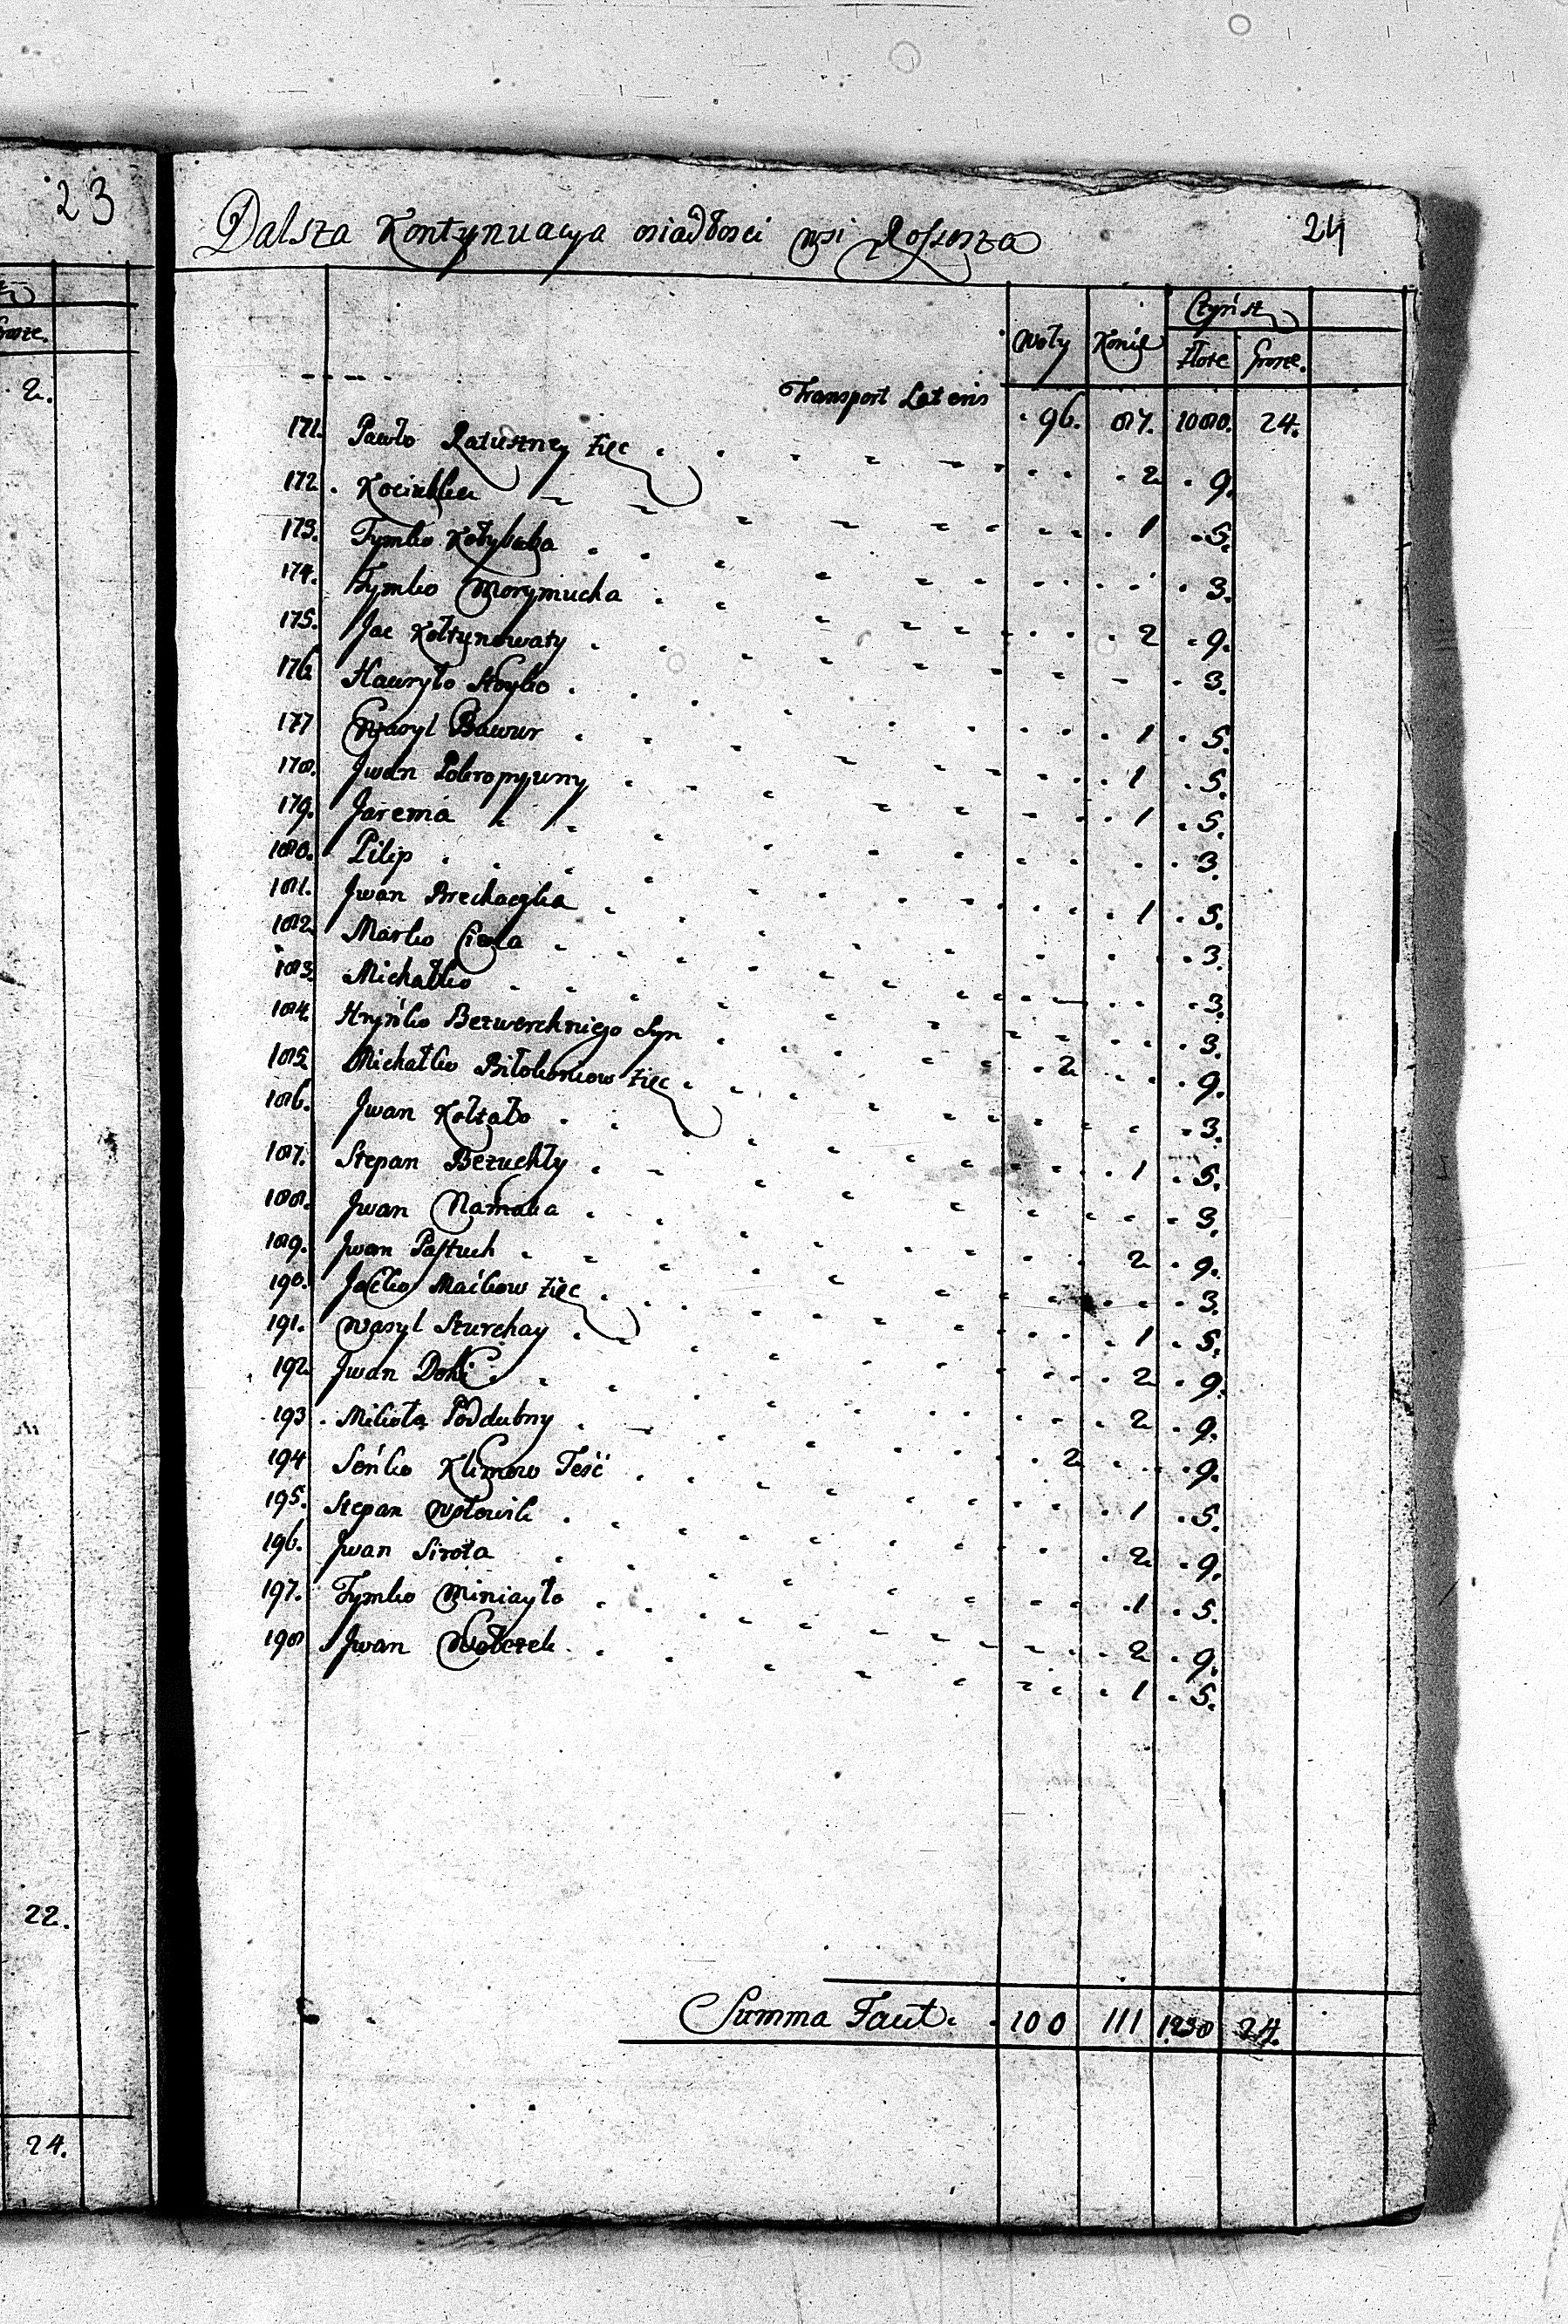 23
Dalsza Kontynuacya osiadłosci wsi Rossosza 24
Czynsz
Woły Konie Złote Grosze.
Transport Lateris 96. 87. 1080. 24.
171. Pawło Ratuszney Zięc 2 9.
172. Kociubka 1 5.
173. Tymko Kołybaba 3.
174. Tymko Morymucha 2 9.
175. Jac Kołtunowaty 3.
176. Hawryło Stoyko 1 5.
177 Wasyl Bawur 1 5.
178. Jwan Dobropywny 1 5.
179. Jarema 3.
180. Pilip 1 5.
181. Jwan Brechaczka 3.
182. Marko Ciwa 3.
183. Michałko 3.
184. Hryńko Bezwerchniego Syn 2 9.
185. Michałko Biłokoniow Zięc 3.
186. Jwan Kołtało 1 5.
187. Stepan Bezuchły 3.
188. Jwan Namaka 2 9.
189. Jwan Pastuch 3.
190. Jaćko Maćkow Zięc 1 5.
191. Wasyl Szurchay 2 9.
192. Jwan Donic 2 9.
193. Mikoła Poddubny 2 9.
194 Seńko Klimow Teść 1 5.
195. Stepan Wołowik 2 9.
196. Jwan Sirota 1 5.
197. Tymko Miniayło 2 9.
198 Jwan Wołczek 1 5.
Summa Facit. 100 111 1238 24.
grosze.
2.
22.
24.